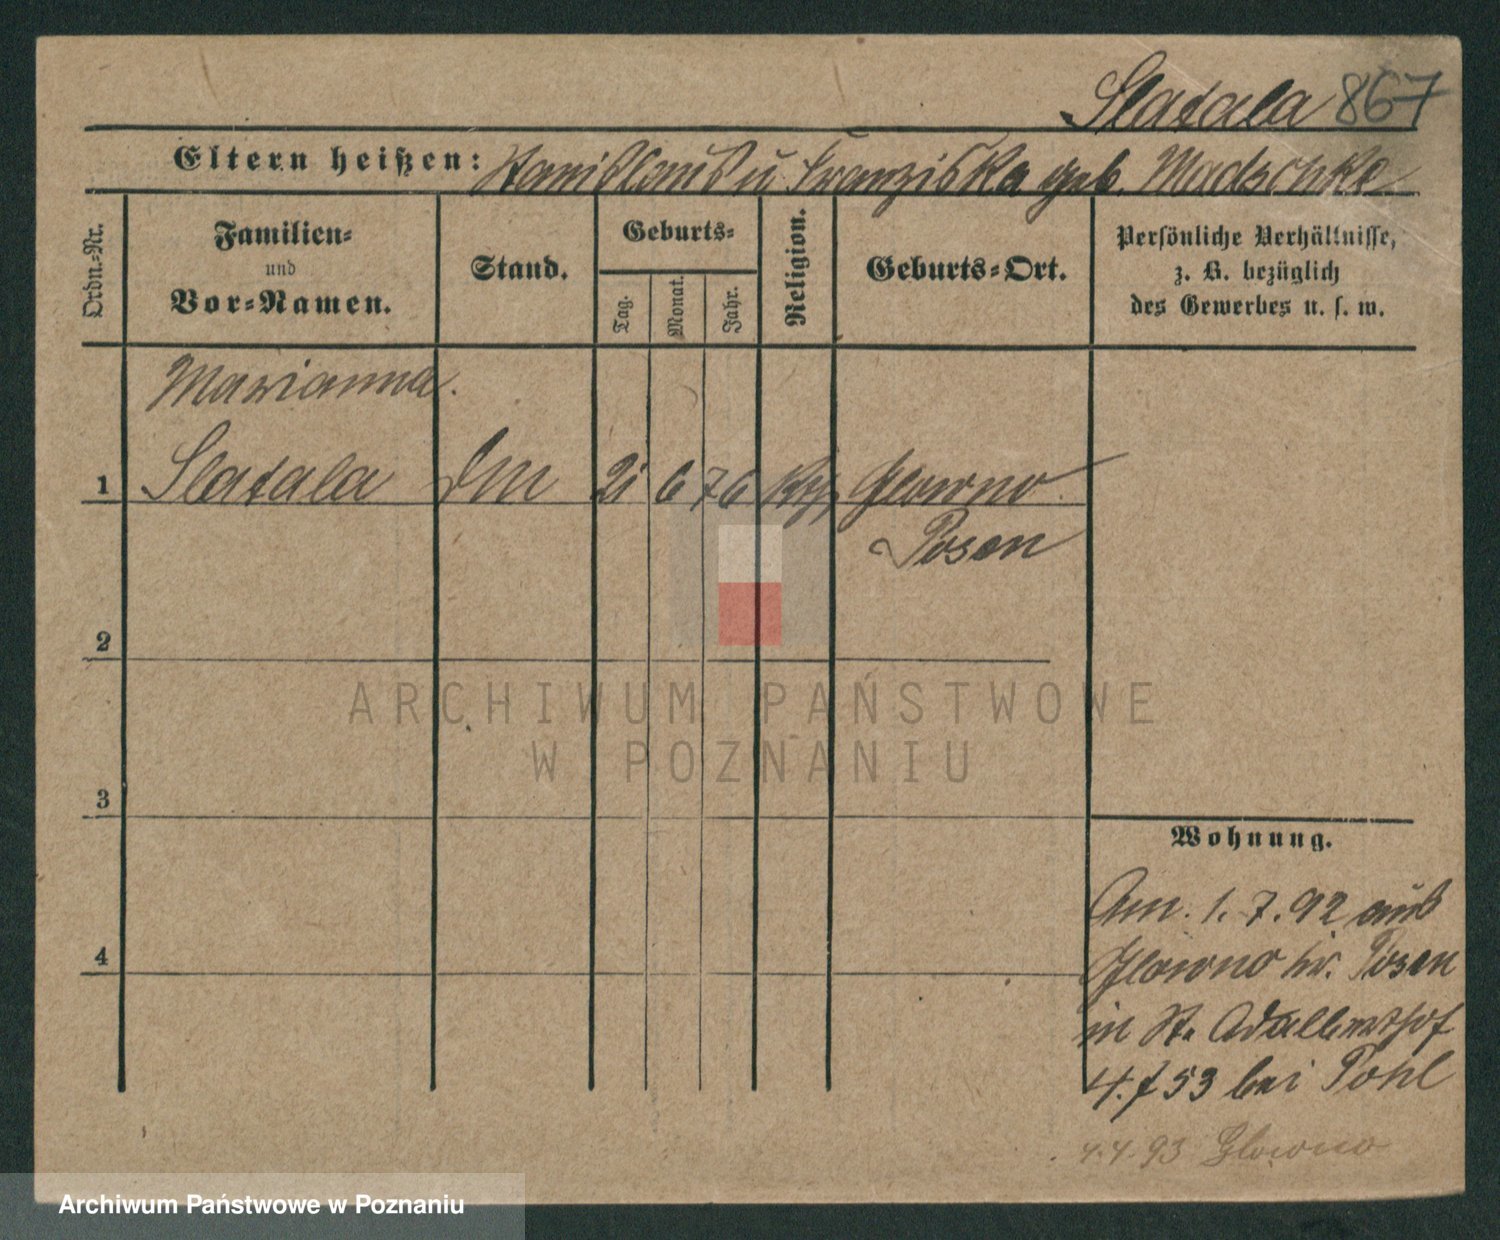 Slatala 867
Eltern heißen: Stanislaus u Franziska geb. Madschke
Ordn.-Nr.
Familien-
und
Vor-Namen.
Stand.
Geburts-
Tag.
Monat.
Jahr.
Religion.
Geburts-Ort.
Persönliche Verhältnisse,
z. B. bezüglich
des Gewerbes u. s. w.
Marianna.
1 Slatala DM 21 6 76 Kth Glowno
Posen
2
3
4
Wohnung.
Am. 1. 7. 92 aus
Glowno kr. Posen
in St. Adalberthof
4. f 53 bei Pohl
4.4.93 Glowno
ARCHIWUM PAŃSTWOWE
W POZNANIU
Archiwum Państwowe w Poznaniu